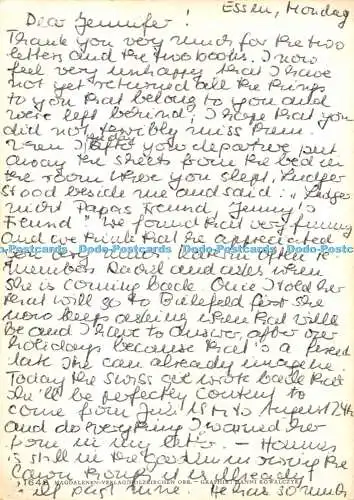 Essen, Monday
Dear Jennifer!
Thank you very much for the two
letters and the two books. I now
feel very unhappy that I have
not yet returned all the things
to you that belong to you and
were left behind; I hope that you
did not terribly miss them.
When I after your departure put
away the sheets from the bed in
the room where you slept Rudger
stood beside me and said: "Rudger
nicht Papas Freund, Jenny's
Freund". We found that very funny
and we think that he appreciated
you very much.
members David and asks when
she is coming back. Once I told her
that will go to Bielefeld first she
now keeps asking when that will
be and I have to answer, after our
holidays because that's a
date she can already imagine.
Today the Swiss girl wrote back that
she'll be perfectly content to
come from July 15th to August 24th
and do everything I wanted her
for in my letter. - Hannes
is still in the garden mowing the
lawn though it is already
half past nine. He has
Dodo-Postcards Dodo-Postcards Dodo-Postcards Dodo-Postcards
www.hippostcard.com
1648 MAGDALENEN-VERLAG HOLZKIRCHEN OBB. - GRAPHIK: HANNI KOWALCZYK